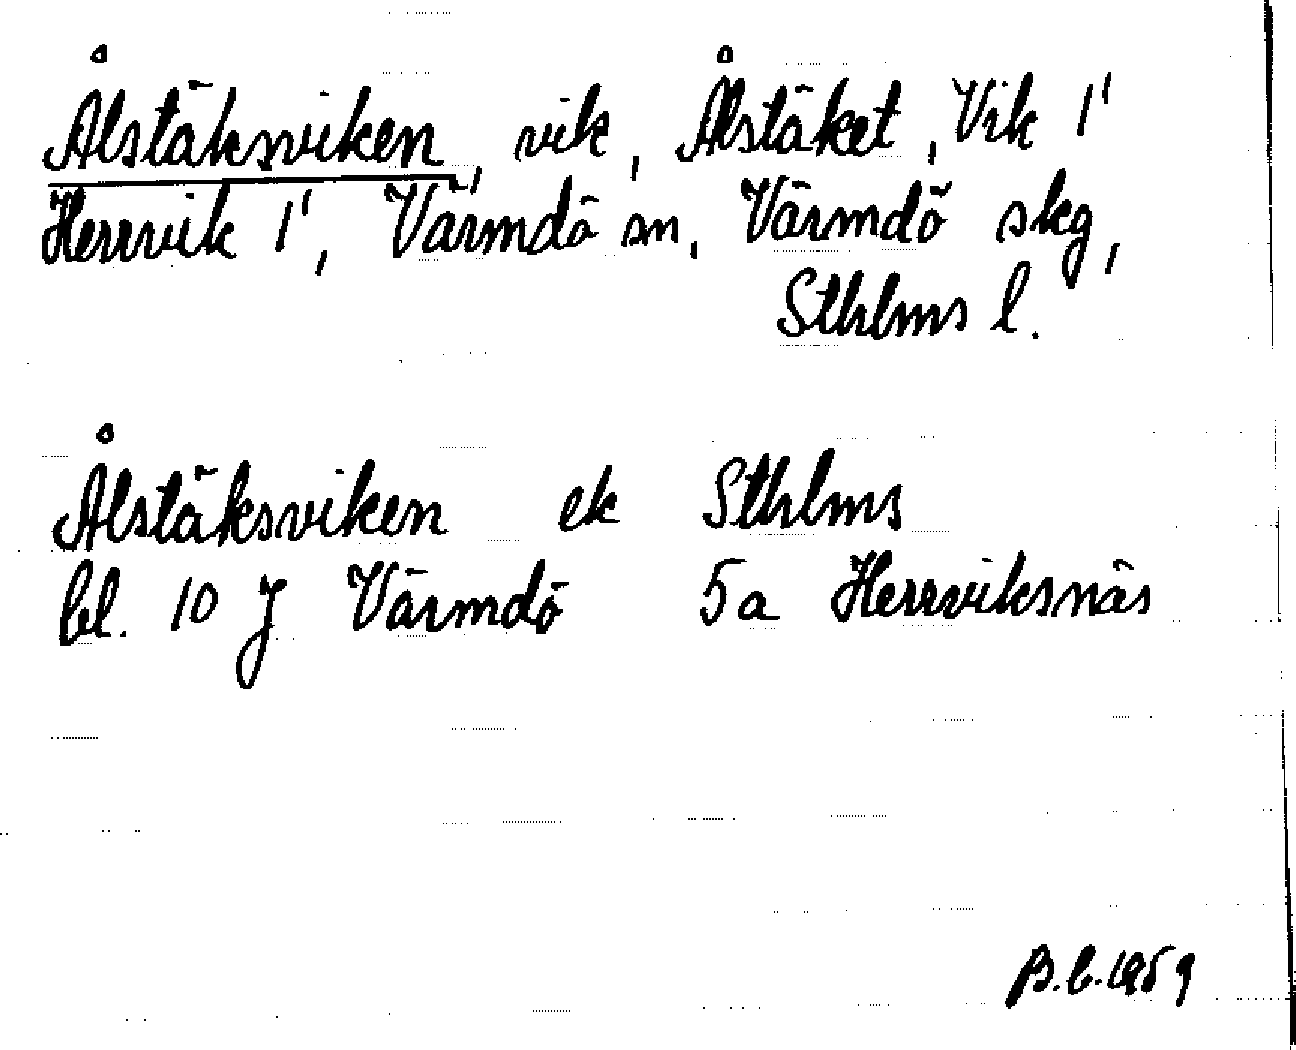 Ålstäksviken, vik, Ålstäket, Vik 1¹
Herrvik 1¹, Värmdö sn, Värmdö skg,
Sthlms l.
Ålstäksviken ek Sthlms
bl. 10 J Värmdö 5a Herrviksnäs
B.C. 1959